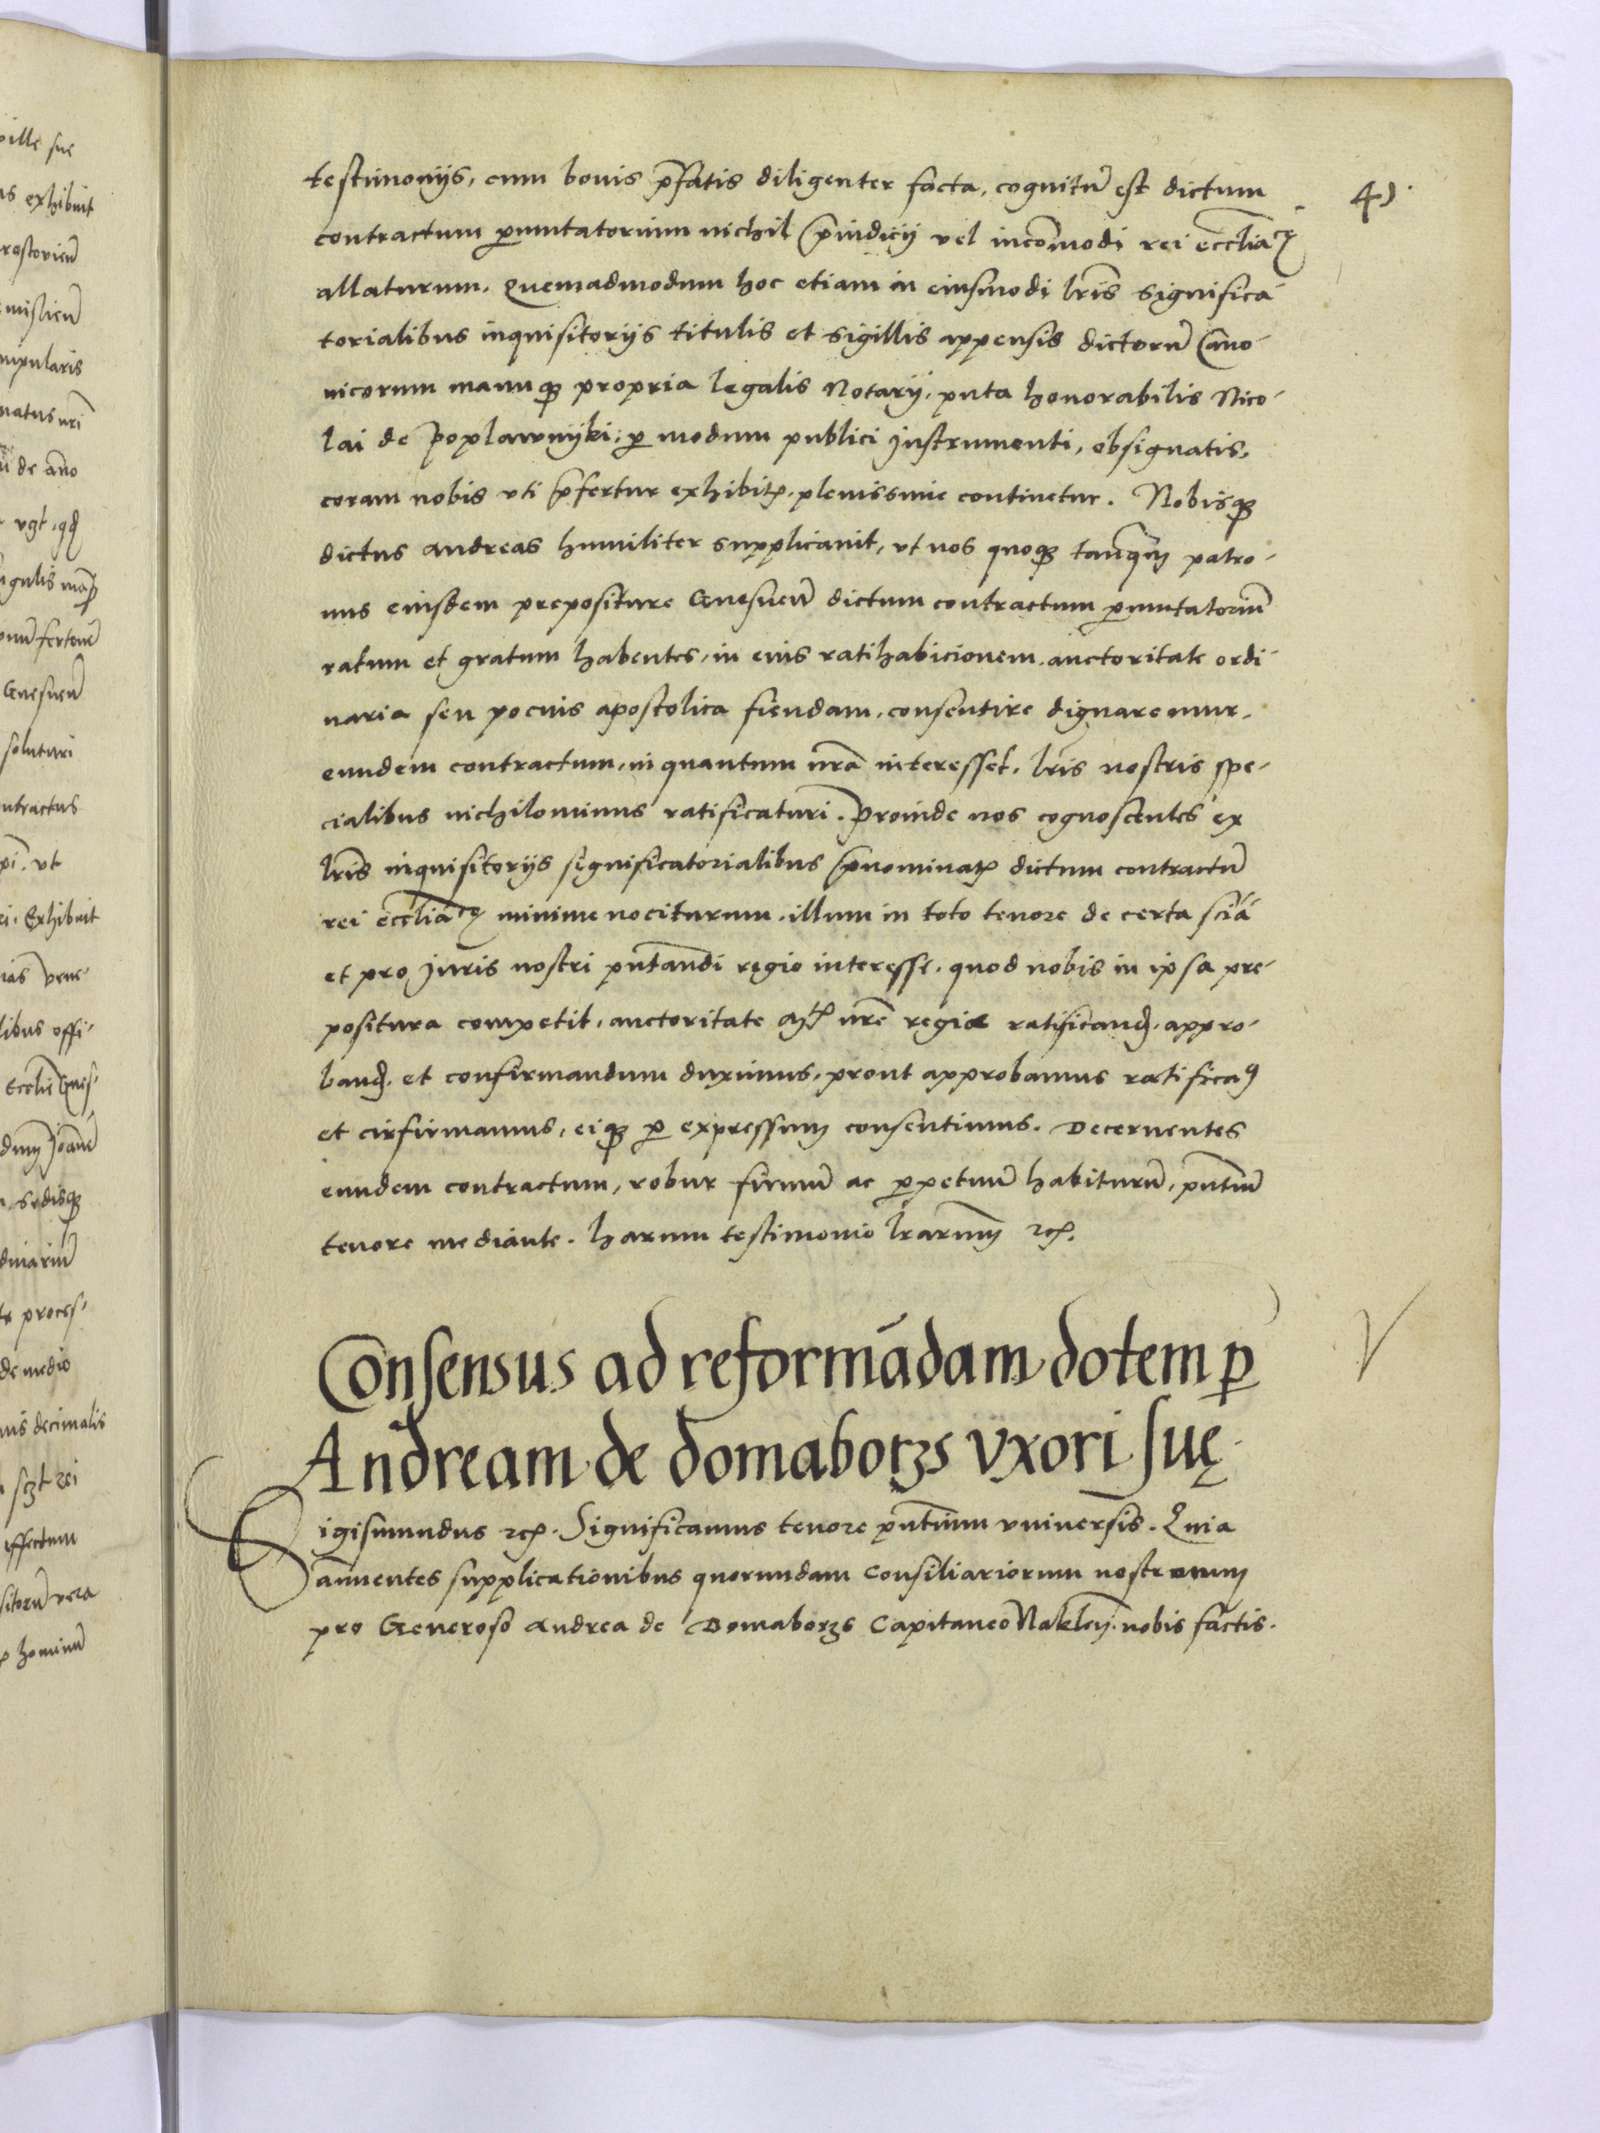 41.
testimonijs, cum bonis p̄fatis diligenter facta, cognitū est dictum
contractum ꝑmutatorium nichil p̄iudicij vel incōmodi rei eccl̄iac̨
allaturum. Quemadmodum hoc etiam in eiusmodi lr̄is significa-
torialibus inquisitorijs titulis et sigillis appensis dictorū Cano-
nicorum manuqꝫ propria legalis Notarij, puta honorabilis Nico-
lai de Poplawnijki, ꝑ modum publici Instrumenti, obsignatis,
coram nobis vti p̄fertur exhibitꝭ, plenissime continetur. Nobisqꝫ
dictus Andreas humiliter supplicauit, vt nos quoqꝫ tanq̄ȝ patro-
nus eiusdem prepositure Gnesneñ dictum contractum ꝑmutatoriū
ratum et gratum habentes, in eius ratihabicionem auctoritate ordi-
naria seu pocius apostolica fiendam, consentire dignaremur,
eundem contractum, in quantum nr̄a interesset, lr̄is nostris spe-
cialibus nichilominus ratificaturi. Proinde nos cognoscentes ex
lr̄is inquisitorijs significatorialibus p̄nominatꝭ dictum contractū
rei eccl̄iac̨ minime nociturum, illum in toto tenore de certa scīa
et pro Iuris nostri pn̄tandi regio interesse, quod nobis in ipsa pre-
positura competit, auctoritate nr̄e regia ratificand̄, appro-
band̄, et confirmandum duximus, prout approbamus ratificaꝯ
et cirfirmamus, eiqꝫ ꝑ expressum consentimus. Decernentes
eundem contractum, robur firmū ac ꝑpetuū habiturū, pn̄tiū
tenore mediante. harum testimonio lrarum ⁊cꝭ.
Consensus ad reformādam dotem ꝑ
Andream de domaborzs vxori suę
Sigismundus ⁊cꝭ. Significamus tenore pn̄tium vniuersis. Quia
annuentes supplicationibus quorundam Consiliariorum nostrorum
pro Generoso Andrea de Domaborzs Capitaneo Nakleñ. nobis factis.